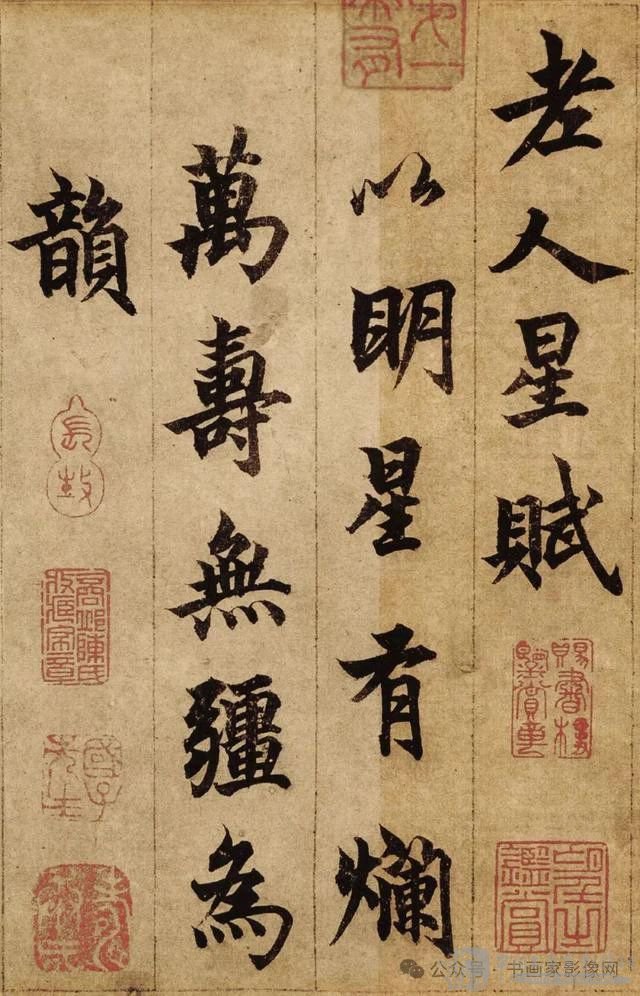 老人星賦
以明星有爛
萬壽無疆為
韻
公众号·书画家影像网